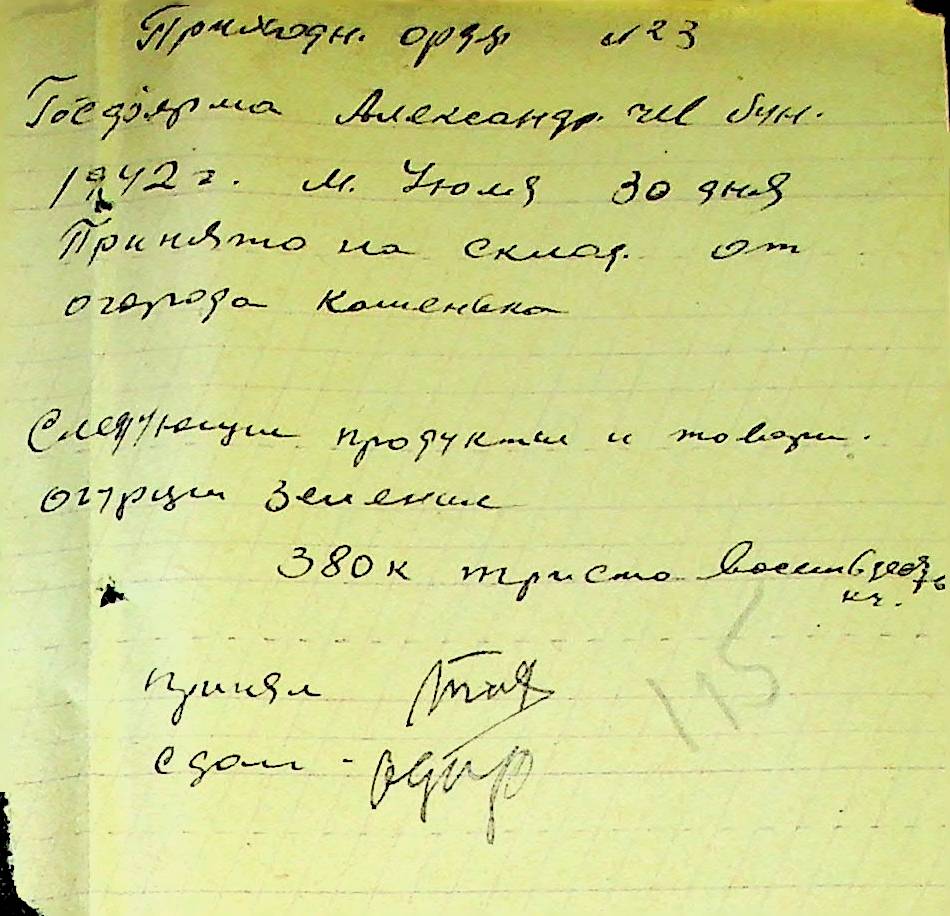 Приходн. орд. №23
Госферма Александр.
1942 г. м. Июля 30 дня
Принято на склад. от
огорода
Следующии продукты и товары.
огурцы зелении
380к триста восемьдесят
кг.
принял
сдал -
115